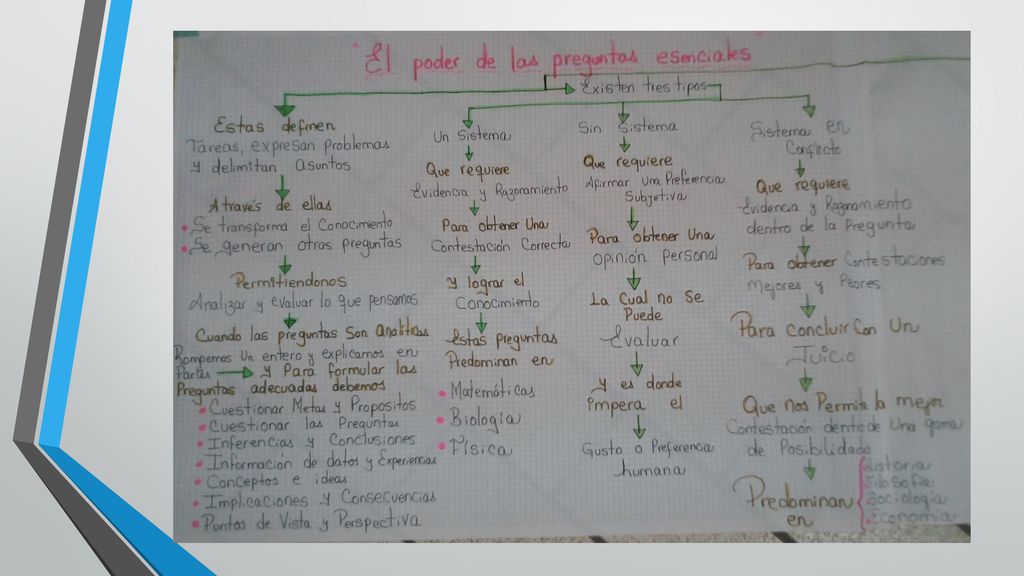 "El poder de las preguntas esenciales"
Existen tres tipos
Estas definen
Tareas, expresan Problemas
y delimitan asuntos
Através de ellas
• Se transforma el Conocimiento
• Se generan otras preguntas
Permitiendonos
Analizar y evaluar lo que pensamos
Cuando las preguntas Son analiticas
Rompemos Un entero y explicamos en
Partes
y Para formular las
Preguntas adecuadas debemos
• Cuestionar Metas y Propositos
• Cuestionar las Preguntas
• Inferencias y Conclusiones
• Información de datos y Experiencias
• Conceptos e ideas
• Implicaciones y Consecuencias
• Puntos de Vista y Perspectiva
Un Sistema
Que requiere
Evidencia y Razonamiento
Para obtener Una
Contestación Correcta
y lograr el
Conocimiento
Estas preguntas
Predominan en
• Matemáticas
• Biologia
• Física
Sin Sistema
Que requiere
Afirmar Una Preferencia
Subjetiva
Para obtener Una
Opinión Personal
La Cual no Se
Puede
Evaluar
y es donde
impera el
Gusto o Preferencia
humana
Sistema en
Conflicto
Que requiere
Evidencia y Razonamiento
dentro de la Pregunta
Para obtener Contestaciones
Mejores y Peores
Para concluir Con Un
Juicio
Que nos Permita la mejor
Contestación dentro de Una gama
de Posibilidades
Predominan
en
Historia
Filosofia
Sociología
Economía